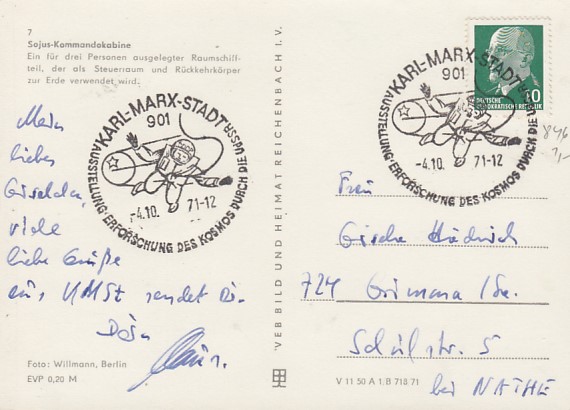 7
Sojus-Kommandokabine
Ein für drei Personen ausgelegter Raumschiff-
teil, der als Steuerraum und Rückkehrkörper
zur Erde verwendet wird.
KARL-MARX-STADT
901
-4.10. 71-12
AUSSTELLUNG·ERFORSCHUNG DES KOSMOS DURCH DIE UDSSR
Mein
liebes
viele
liebe Grüße
aus KMSt sendet Dir
Dein
Foto: Willmann, Berlin
EVP 0,20 M
VEB BILD UND HEIMAT REICHENBACH I. V.
DEUTSCHE
DEMOKRATISCHE REPUBLIK
10
KARL-MARX-STADT
901
-4.10. 71-12
AUSSTELLUNG·ERFORSCHUNG DES KOSMOS DURCH DIE
846
1,-
Frau
Gisela
724 Grimma /Sa.
Schulstr. 5
bei NATHE
V 11 50 A 1/B 718 71